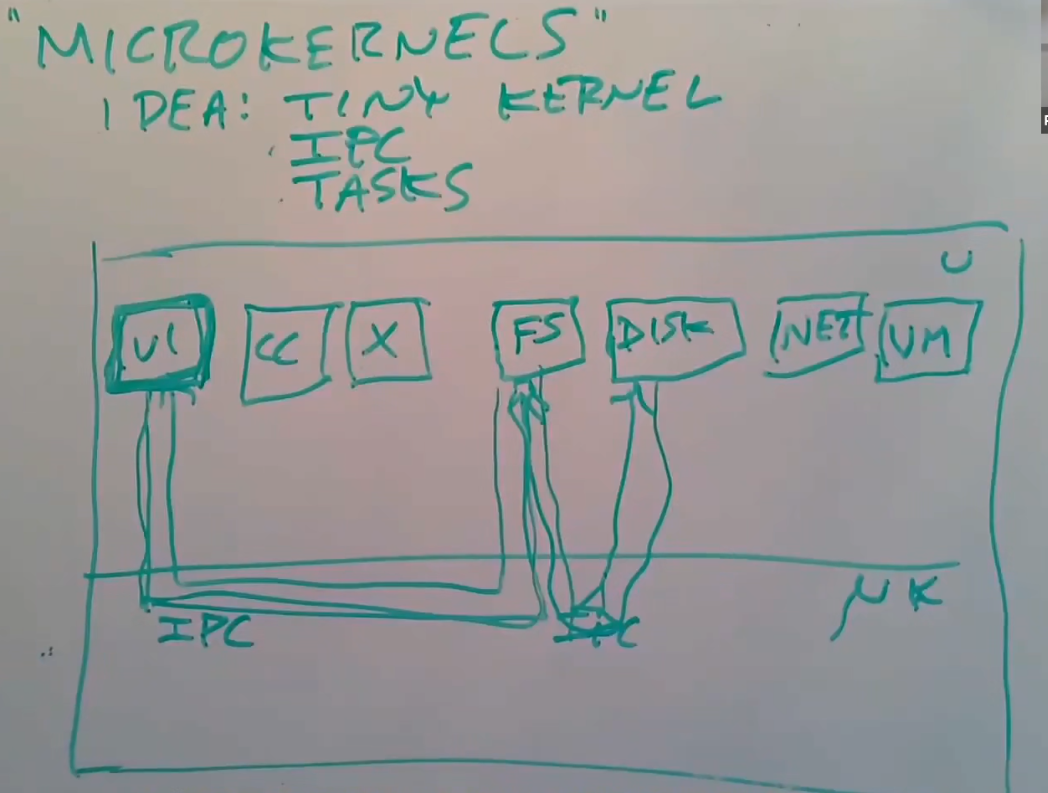 "MICROKERNELS"
IDEA: TINY KERNEL
· IPC
· TASKS
U
VI CC X FS DISK NET VM
μK
IPC IPC